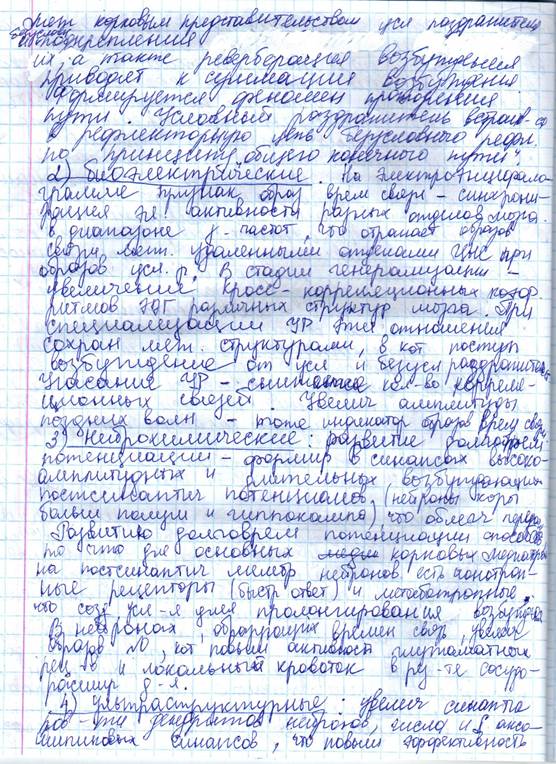 мет корковым представительством усл раздражителя
и подкрепления
их, а также реверберация возбуждения
приводят к суммации возбуждения
формируется феномен проторения
пути. Условный раздражитель
в рефлекторную цепь безусловного рефл.
по принципу „общего конечного пути“.
2) биоэлектрические. на электроэнцефало-
грамме признак образ врем связи – синхрони-
зация эл активности разных отделов мозга
в диапазоне γ-частот, что отражает образов
связи меж. удаленными отделами ЦНС при
образов усл. р. В стадии генерализации –
увеличение кросс-корреляционных
ритмов ЭЭГ различных структур мозга. При
специализации УР эти отношения
сохран меж. структурами, в кот поступ
возбуждение от усл и безусл раздражит
Угасание УР – кол-во корреля-
ционных связей. Увелич амплитуды
поздних волн – тоже индикатор образов врем связ
3) Нейрохимические: развитие долговрем
потенциации – формир в синапсах высоко-
амплитудных и длительных возбуждающих
постсинаптич потенциалов (нейроны коры
больш полуш и гиппокампа), что облегч
Развитию долговрем потенциации способств
то что для основных корковых медиаторов
на постсинаптич мембр нейронов есть ионотроп-
ные рецепторы (быстр ответ) и метаботропные
что созд усл-я для пролонгирования возбужден
В нейронах, образующих времен связь, увелич
образов NO, кот повыш активност глутаматных
рец-ов и локальный кровоток в рез-те сосудо-
расшир д-я.
4) Ультраструктурные: увелич
дендритов нейронов, числа и S аксо-
шипиковых синапсов, что повыш эффективность